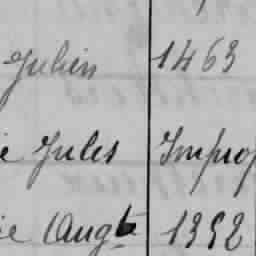 Julien 1463
e Jules Improp
ie Aug^te 1392